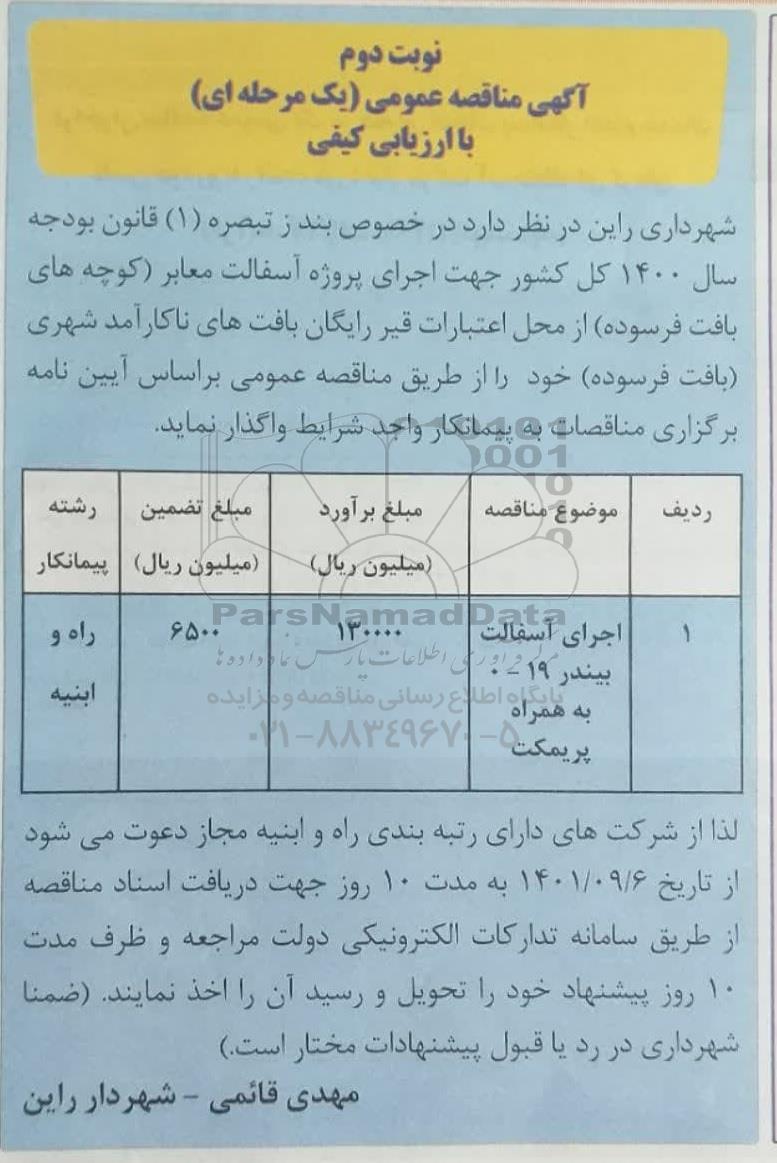 نوبت دوم
آگهی مناقصه عمومی (یک مرحله ای)
با ارزیابی کیفی
شهرداری راین در نظر دارد در خصوص بند ز تبصره (۱) قانون بودجه
سال ۱۴۰۰ کل کشور جهت اجرای پروژه آسفالت معابر (کوچه های
بافت فرسوده) از محل اعتبارات قیر رایگان بافت های ناکارآمد شهری
(بافت فرسوده) خود را از طریق مناقصه عمومی براساس آیین نامه
برگزاری مناقصات به پیمانکار واجد شرایط واگذار نماید.
ردیف موضوع مناقصه مبلغ برآورد مبلغ تضمین رشته
(میلیون ریال) (میلیون ریال) پیمانکار
۱ اجرای آسفالت ۱۳۰۰۰۰ ۶۵۰۰ راه و
بیندر ۱۹ - ۰ ابنیه
به همراه
پریمکت
ParsNamadData
مرکز فرآوری اطلاعات پارس نماد داده ها
پایگاه اطلاع رسانی مناقصه و مزایده
۰۲۱-۸۸۳۴۹۶۷۰-۵
لذا از شرکت های دارای رتبه بندی راه و ابنیه مجاز دعوت می شود
از تاریخ ۱۴۰۱/۰۹/۶ به مدت ۱۰ روز جهت دریافت اسناد مناقصه
از طریق سامانه تدارکات الکترونیکی دولت مراجعه و ظرف مدت
۱۰ روز پیشنهاد خود را تحویل و رسید آن را اخذ نمایند. (ضمنا
شهرداری در رد یا قبول پیشنهادات مختار است.)
مهدی قائمی - شهردار راین